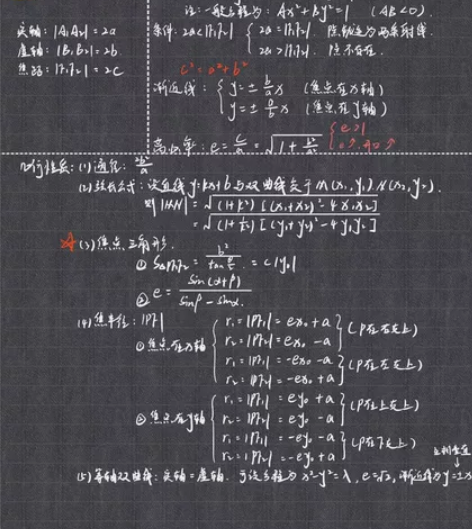 注:一般方程为:Ax²+By²=1 (AB<0).
实轴:|A₁A₂|=2a
虚轴:|B₁B₂|=2b
焦距:|F₁F₂|=2C
条件:2a<|F₁F₂| { 2a=|F₁F₂|. 轨迹为两条射线.
2a>|F₁F₂|. 轨迹不存在.
c²=a²+b²
渐近线:{ y=±b/a x (焦点在x轴)
y=±a/b x (焦点在y轴)
离心率:e=c/a=√(1+b²/a²) { e>1
e↗,开口↗
几何性质:(1)通径:2b²/a
(2)弦长公式:设直线y=kx+b与双曲线交于M(x₁,y₁) N(x₂,y₂).
则|MN|=√((1+k²)[(x₁+x₂)²-4x₁x₂])
=√((1+1/k²)[(y₁+y₂)²-4y₁y₂])
(3)焦点三角形.
① S△PF₁F₂=b²/tan(θ/2)=c|y₀|
② e=sin(α+β)/(sinβ-sinα).
(4)焦半径:|PF|
①焦点在x轴 { r₁=|PF₁|=ex₀+a
r₂=|PF₂|=ex₀-a } (P在右支上)
r₁=|PF₁|=-ex₀-a
r₂=|PF₂|=-ex₀+a } (P在左支上)
②焦点在y轴 { r₁=|PF₁|=ey₀+a
r₂=|PF₂|=ey₀-a } (P在上支上)
r₁=|PF₁|=-ey₀-a
r₂=|PF₂|=-ey₀+a } (P在下支上)
互相垂直
↓
(5)等轴双曲线:实轴=虚轴. 可设方程为x²-y²=λ, e=√2, 渐近线为y=±x